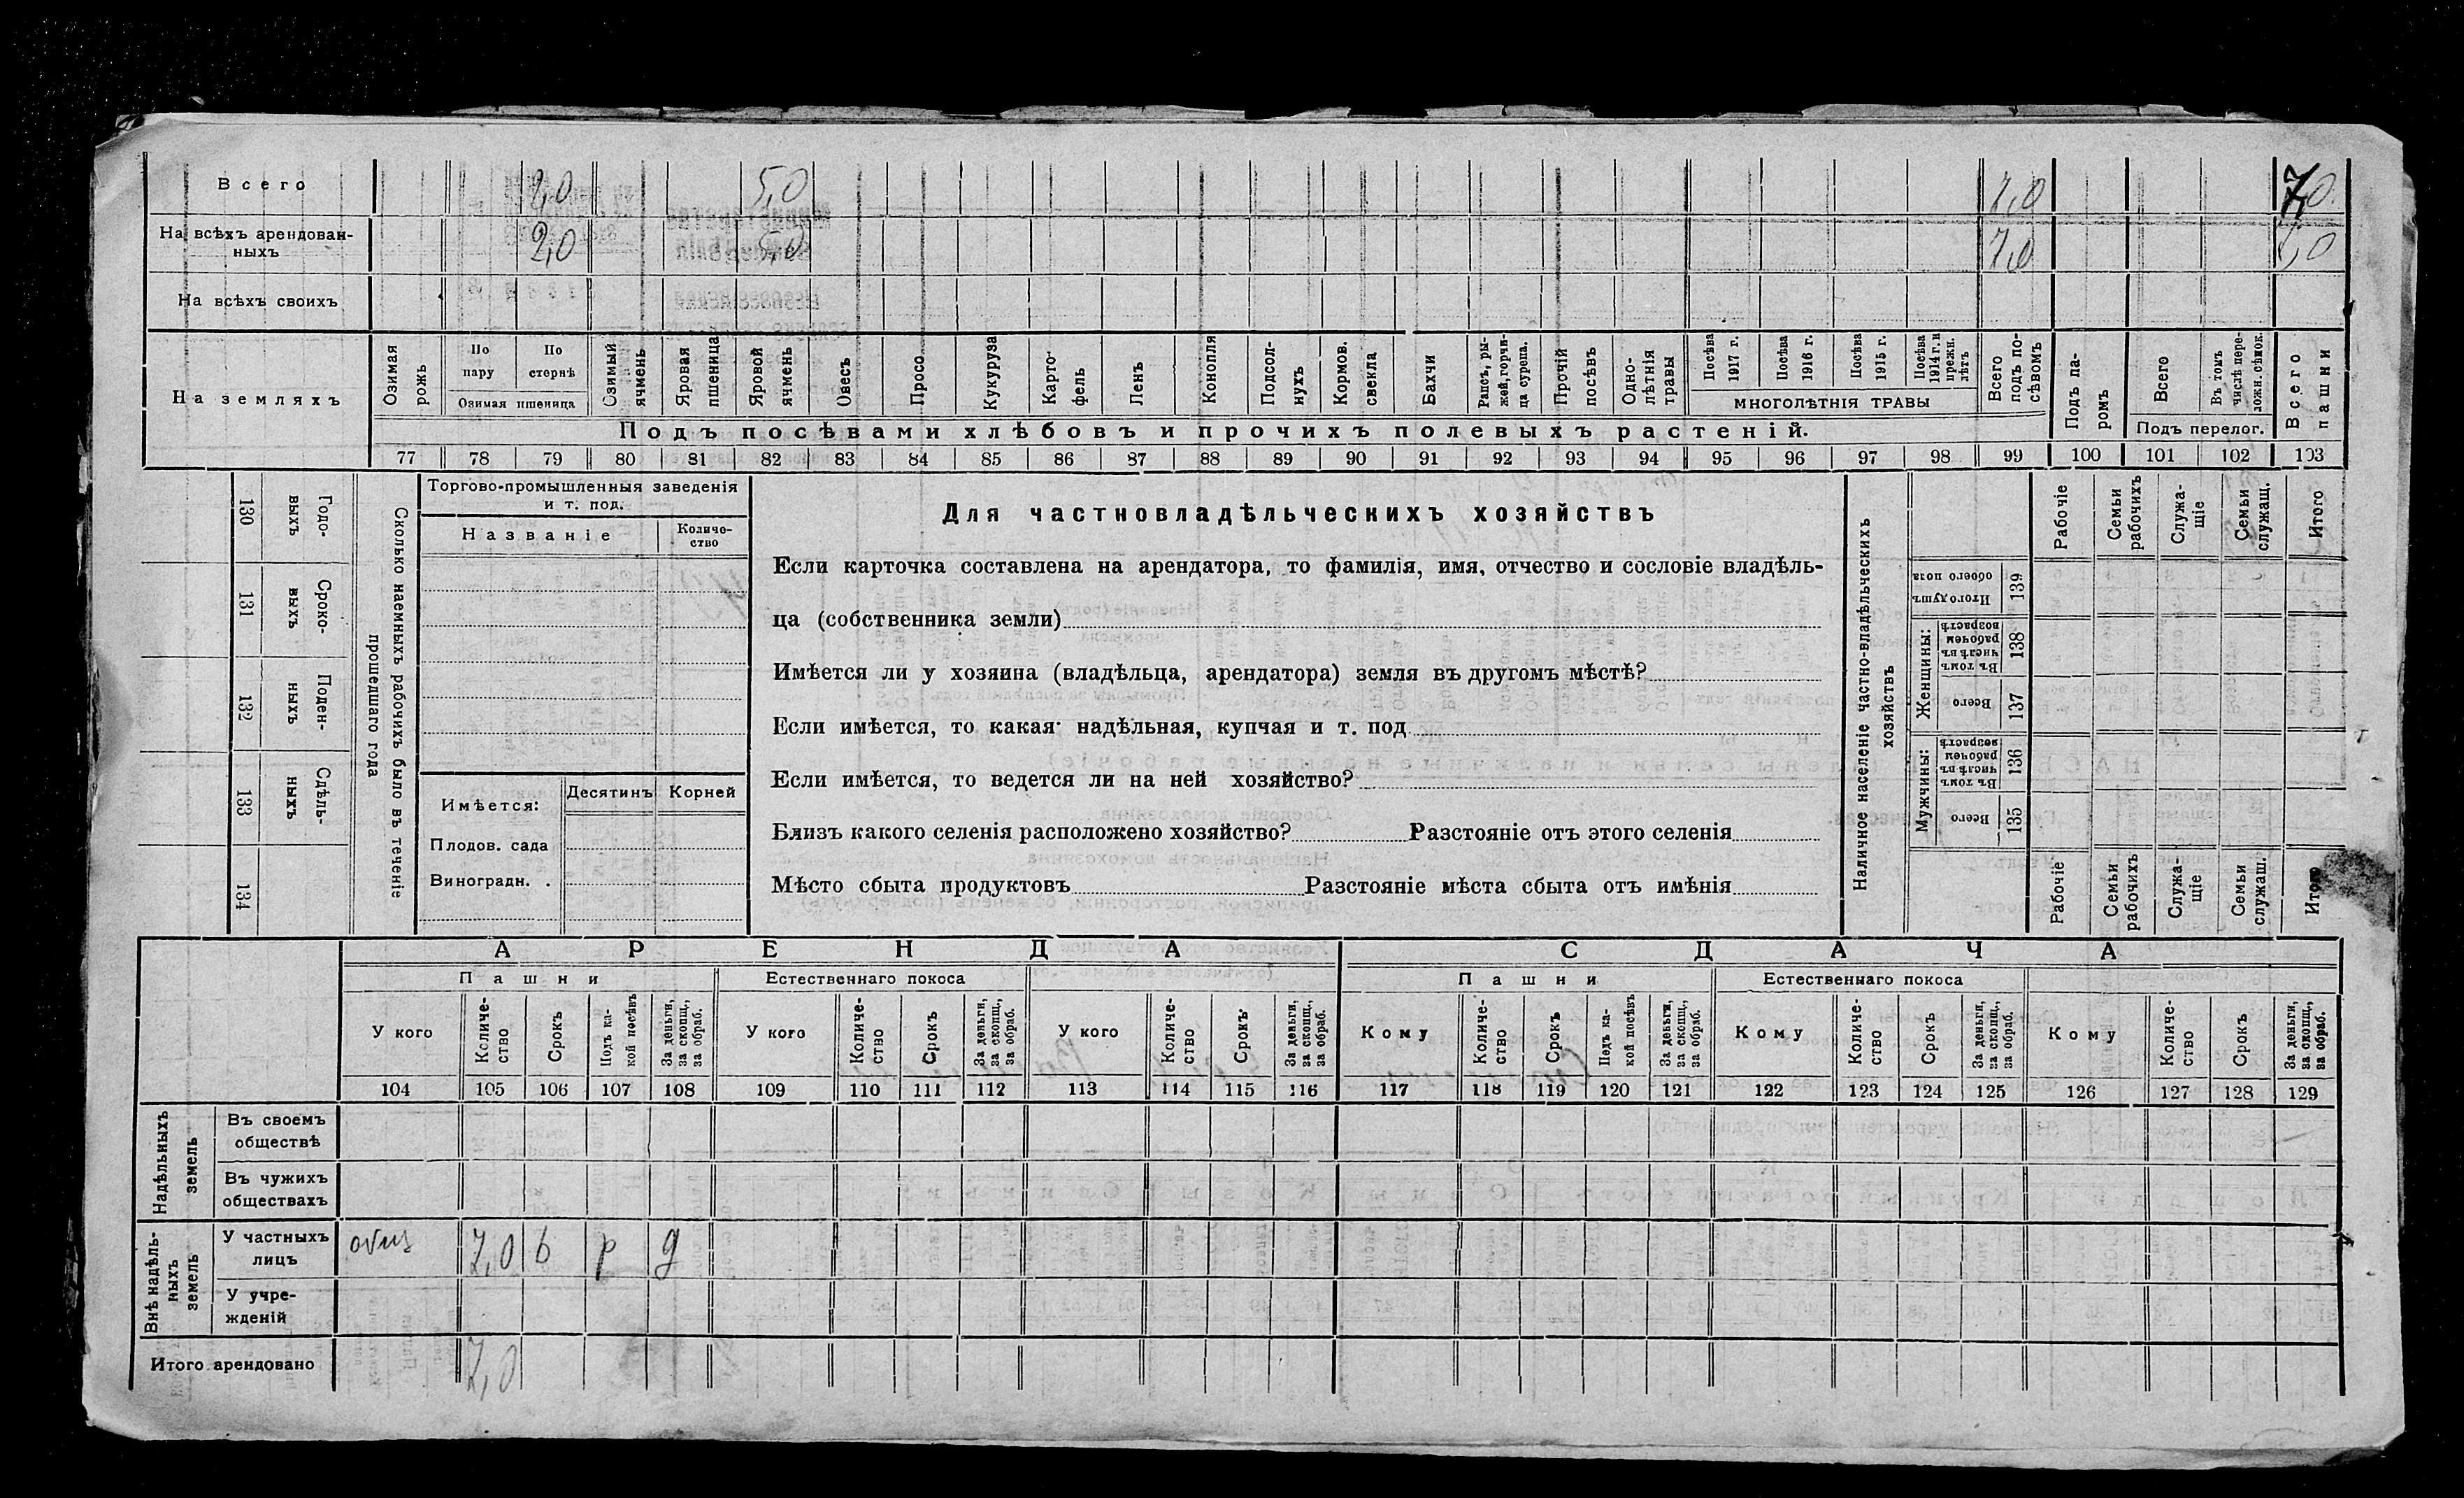 Всего 2,0 5,0 7,0 7,0
На всѣхъ арендован-
ныхъ 2,0 5,0 7,0 7,0
На всѣхъ своихъ
На земляхъ
Озимая рожь
По пару
По стернѣ
Озимая пшеница
Озимый ячмень
Яровая пшеница
Яровой ячмень
Овесъ
Просо
Кукуруза
Карто-
фель
Ленъ
Конопля
Подсол-
нухъ
Кормов. свекла
Бахчи
Рапсъ, ры-
жей, горчи-
ца сурепа.
Прочій посѣвъ
Одно-
лѣтнія травы
Посѣва 1917 г.
Посѣва 1916 г.
Посѣва 1915 г.
Посѣва 1914 г. и прежн. лѣтъ
МНОГОЛѢТНІЯ ТРАВЫ
Всего подъ по-
сѣвомъ
Подъ па-
ромъ
Всего
Въ томъ числѣ пере-
ложн. сѣнок.
Подъ перелог.
Всего пашни
Подъ посѣвами хлѣбовъ и прочихъ полевыхъ растеній.
77 78 79 80 81 82 83 84 85 86 87 88 89 90 91 92 93 94 95 96 97 98 99 100 101 102 103
130 Годо-
выхъ
131 Сроко-
выхъ
132 Поден-
ныхъ
133 Сдѣль-
ныхъ
134
Сколько наемныхъ рабочихъ было въ теченіе
прошедшаго года
Торгово-промышленныя заведенія
и т. под.
Названіе
Количе-
ство
Имѣется:
Десятинъ
Корней
Плодов. сада
Виноградн. .
Для частновладѣльческихъ хозяйствъ
Если карточка составлена на арендатора, то фамилія, имя, отчество и сословіе владѣль-
ца (собственника земли)
Имѣется ли у хозяина (владѣльца, арендатора) земля въ другомъ мѣстѣ?
Если имѣется, то какая надѣльная, купчая и т. под
Если имѣется, то ведется ли на ней хозяйство?
Близъ какого селенія расположено хозяйство? Разстояніе отъ этого селенія
Мѣсто сбыта продуктовъ Разстояніе мѣста сбыта отъ имѣнія
Наличное населеніе частно-владѣльческихъ
хозяйствъ
Рабочіе
Семьи рабочихъ
Служа-
щіе
Семьи служащ.
Итого
139 Итого душъ обоего пола
Женщины:
138 Въ томъ числѣ въ рабочемъ возрастѣ
137 Всего
Мужчины:
136 Въ томъ числѣ въ рабочемъ возрастѣ
135 Всего
Рабочіе
Семьи рабочихъ
Служа-
щіе
Семьи служащ.
Итого
АРЕНДА
СДАЧА
Пашни
Естественнаго покоса
Пашни
Естественнаго покоса
У кого
Количе-
ство
Срокъ
Подъ ка-
кой посѣвъ
За деньги, за скопщ., за обраб.
У кого
Количе-
ство
Срокъ
За деньги, за скопщ., за обраб.
У кого
Количе-
ство
Срокъ
За деньги, за скопщ., за обраб.
Кому
Количе-
ство
Срокъ
Подъ ка-
кой посѣвъ
За деньги, за скопщ., за обраб.
Кому
Количе-
ство
Срокъ
За деньги, за скопщ., за обраб.
Кому
Количе-
ство
Срокъ
За деньги, за скопщ., за обраб.
104 105 106 107 108 109 110 111 112 113 114 115 116 117 118 119 120 121 122 123 124 125 126 127 128 129
Надѣльныхъ
земель
Въ своемъ
обществѣ
Въ чужихъ
обществахъ
Внѣ надѣль-
ныхъ
земель
У частныхъ
лицъ 7,0 6 р д
У учре-
жденій
Итого арендовано 7,0